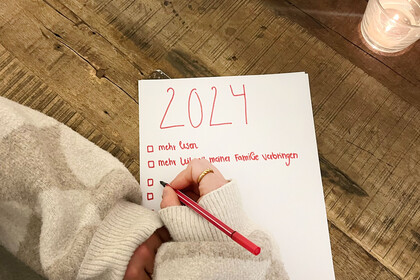 2024
mehr lesen
mehr meiner Familie verbringen